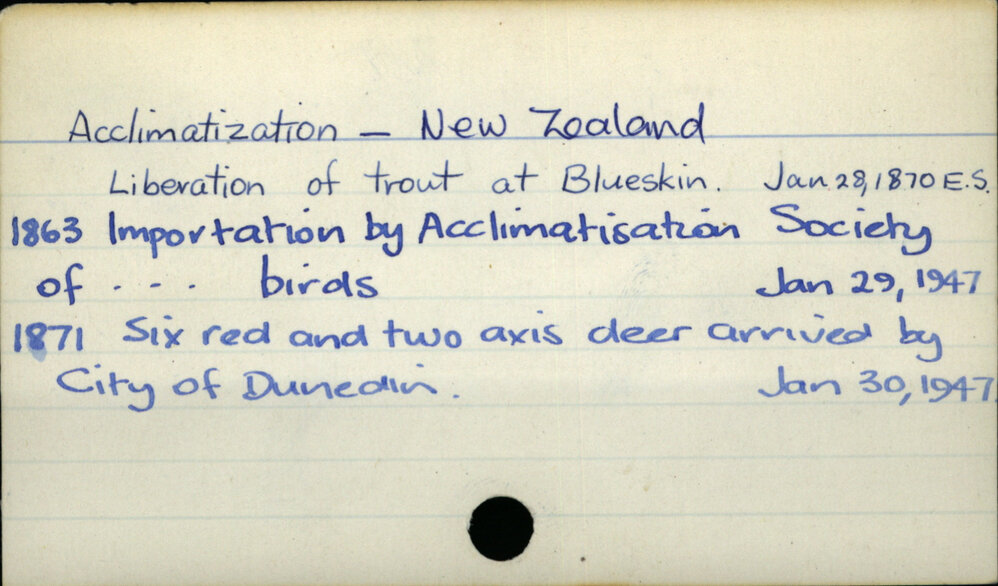 Acclimatization – New Zealand
Liberation of trout at Blueskin. Jan 28, 1870 E.S.
1863 Importation by Acclimatisation Society
of . . . birds Jan 29, 1947
1871 Six red and two axis deer arrived by
City of Dunedin. Jan 30, 1947.